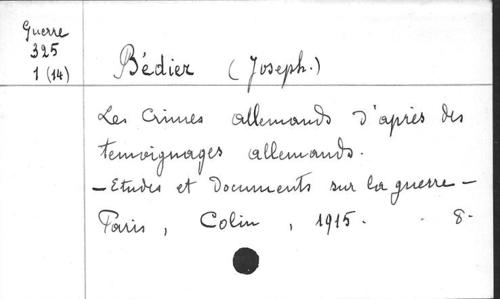 Guerre
325
1 (14)
Bédier (Joseph.)
Les Crimes allemands d'après des
temoignages allemands.
- Etudes et Documents sur la guerre -
Paris, Colin, 1915. . 8.